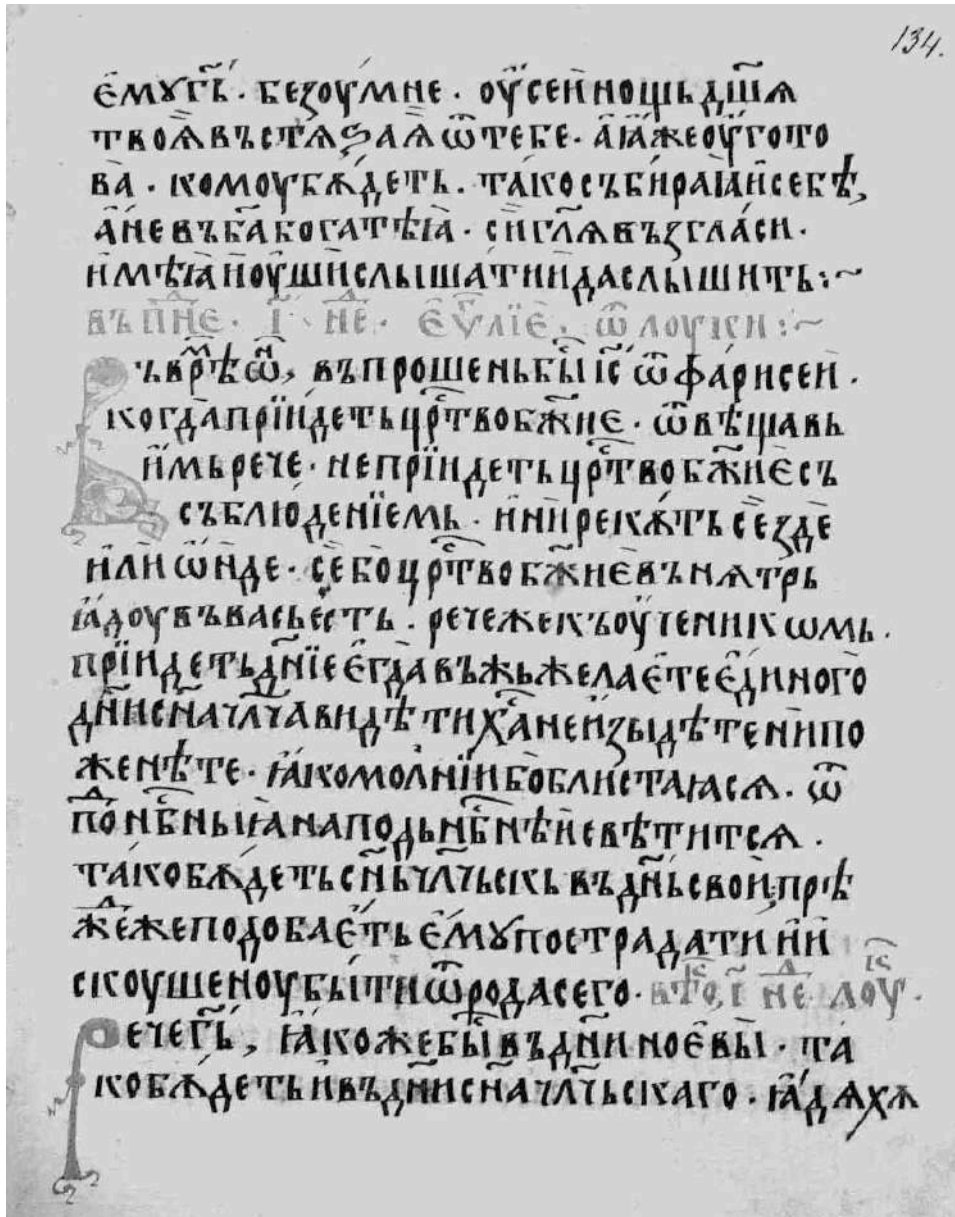 134.
є҆мꙋ гь҃ · безоу́мне · оу҆ сеи нощь дш҃ѧ
твоѧ въстѧѕаѧ ѿ тебе · а҆ ꙗ҆же оу҆гото
ва · комоу бѫ́деть · та́ко събираꙗи себѣ,
а҆ не въ ба҃ богатѣꙗ · си гл҃ѧ възгла́си ·
и҆мѣꙗи оу҆ши слышати и да слышить :~
въ пⷩ҇е · і҃ · неⷣ · єѵⷢ҇лїе · ѿ лоукы :~
Въ врⷨѣ ѡⷩ, въпрошень быⷭ іс҃ ѿ фарисеи ·
когда прїидеть црⷭ҇тво бж҃ие · ѿвѣщавь
и҆мь рече · не прїидеть црⷭ҇тво бж҃ие съ
съблю́денїемь · ни рекѫть се езде
и҆ли ѡ҆нде · се бо црⷭ҇тво бж҃ие вънѫтрь
ꙗ҆доу въ вась есть · рече же къ оу҆ченикѡмь ·
прїидеть дн҃їе є҆гда въжьжелаєте є҆диного
дн҃и сн҃а чл҃ча видѣти хⷭ҇а не и҆зыдѣте ни по
женѣте · ꙗ҆ко молнїи бо блистаꙗсѧ · ѿ
поⷣ нбⷭ҇ныꙗ на подьнбⷭ҇нѣи свѣтитсѧ ·
та́ко бѫ́деть сн҃ь чл҃чьскь въ дн҃ь свои, прѣ
жⷣе же подобаєть є҆мꙋ пострадати и҆ и҆
скоушеноу бы́ти ѿ рода сего · вътоⷬ, і҃ неⷣ лоуⷦ ·
Рече гь҃, ꙗ҆коже быⷭ въ дн҃и ноєвы · та
ко бѫ́деть и҆ въ дн҃и сн҃а чл҃чьскаго · ꙗ҆дѧхѫ